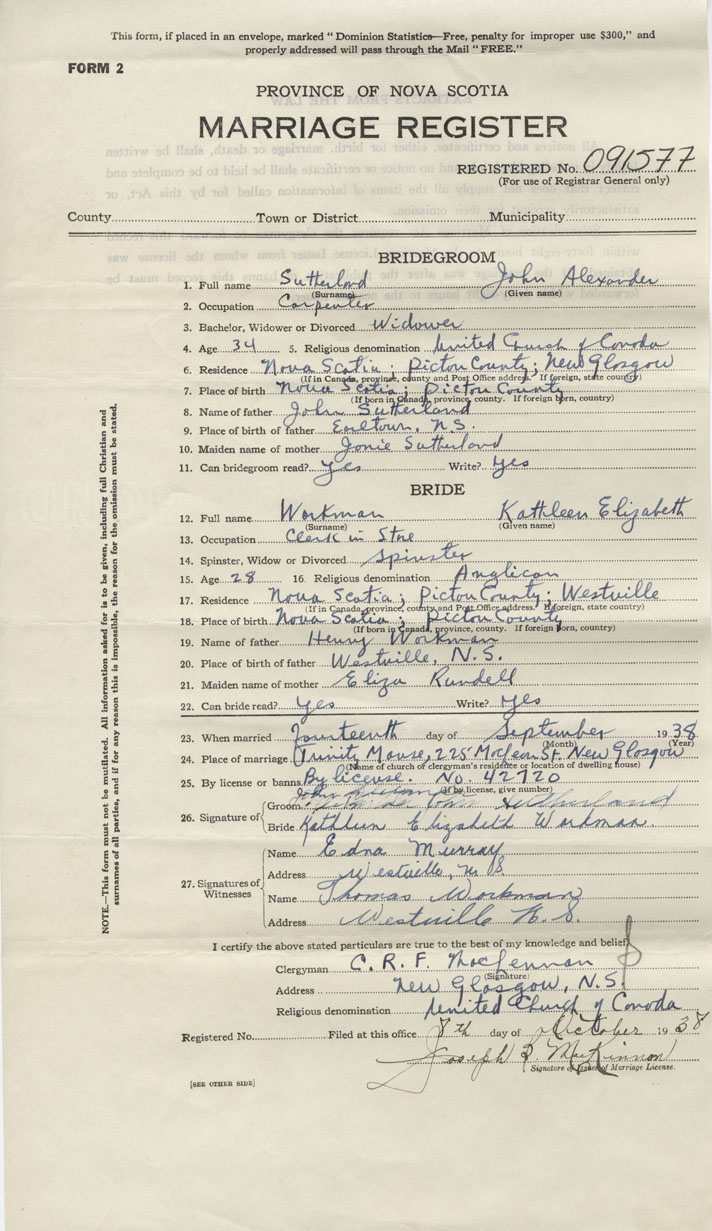 This form, if placed in an envelope, marked " Dominion Statistics—Free, penalty for improper use $300," and
properly addressed will pass through the Mail " FREE."
FORM 2
PROVINCE OF NOVA SCOTIA
MARRIAGE REGISTER
REGISTERED No. 091577
(For use of Registrar General only)
County Town or District Municipality
BRIDEGROOM
1. Full name Sutherland John Alexander
(Surname) (Given name)
2. Occupation Carpenter
3. Bachelor, Widower or Divorced Widower
4. Age 34 5. Religious denomination United Church of Canada
6. Residence Nova Scotia; Pictou County; New Glasgow
(If in Canada, province, county and Post Office address. If foreign, state country)
7. Place of birth Nova Scotia; Pictou County
(If born in Canada, province, county. If foreign born, country)
8. Name of father John Sutherland
9. Place of birth of father Earltown, N.S.
10. Maiden name of mother Janie Sutherland
11. Can bridegroom read? Yes Write? Yes
BRIDE
12. Full name Workman Kathleen Elizabeth
(Surname) (Given name)
13. Occupation Clerk in Store
14. Spinster, Widow or Divorced Spinster
15. Age 28 16. Religious denomination Anglican
17. Residence Nova Scotia; Pictou County; Westville
(If in Canada, province, county and Post Office address. If foreign, state country)
18. Place of birth Nova Scotia; Pictou County
(If born in Canada, province, county. If foreign born, country)
19. Name of father Henry Workman
20. Place of birth of father Westville, N.S.
21. Maiden name of mother Eliza Rundell
22. Can bride read? Yes Write? Yes
23. When married fourteenth day of September 1938
(Month) (Year)
24. Place of marriage Trinity Manse, 225 McLean St. New Glasgow
(Name of church of clergyman's residence or location of dwelling house)
25. By license or banns By license. No. 42720
(If by license, give number)
26. Signature of Groom Sutherland
Bride Kathleen Elizabeth Workman.
27. Signatures of Witnesses
Name Edna Murray
Address Westville, N.S.
Name Thomas Workman
Address Westville N.S.
I certify the above stated particulars are true to the best of my knowledge and belief.
Clergyman C. R. F. MacLennan
(Signature)
Address New Glasgow, N.S.
Religious denomination United Church of Canada
Registered No. Filed at this office 8th day of October 1938
Joseph MacKinnon
Signature of Issuer of Marriage License.
[SEE OTHER SIDE]
NOTE.—This form must not be mutilated. All information asked for is to be given, including full Christian and
surnames of all parties, and if for any reason this is impossible, the reason for the omission must be stated.